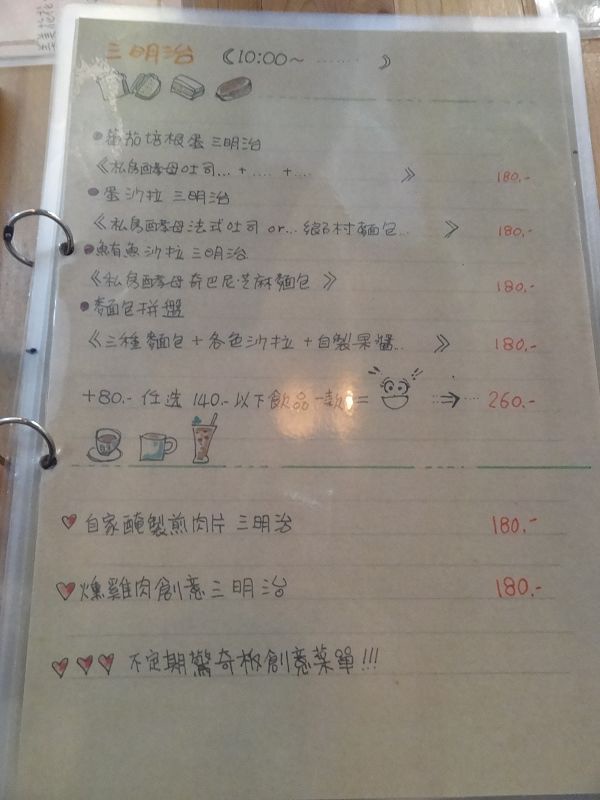 三明治 《10:00~ ……… 》
●蕃茄培根蛋三明治
《私房酵母吐司… + …. + …. 》 180.-
●蛋沙拉 三明治
《私房酵母法式吐司 or… 鄉村麵包… 》 180.-
●鮪魚沙拉 三明治
《私房酵母奇巴尼芝麻麵包 》 180.-
●麵包拼盤
《三種麵包+各色沙拉+自製果醬… 》 180.-
+80.- 任选 140.-以下飲品一款 = ⇒ 260.-
♥ 自家醃製煎肉片 三明治 180.-
♥ 燻雞肉創意三明治 180.-
♥♥♥ 不定期驚奇板創意菜單!!!